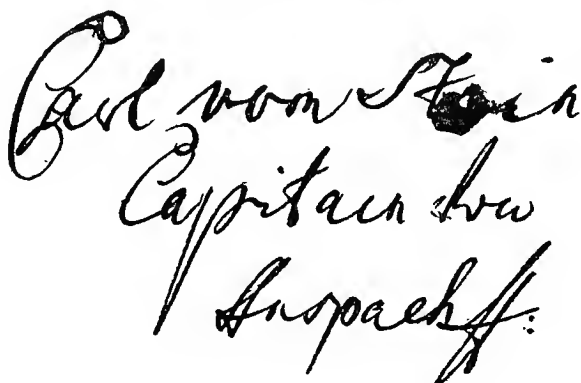 Carl von Stein
Capitain
Anspach